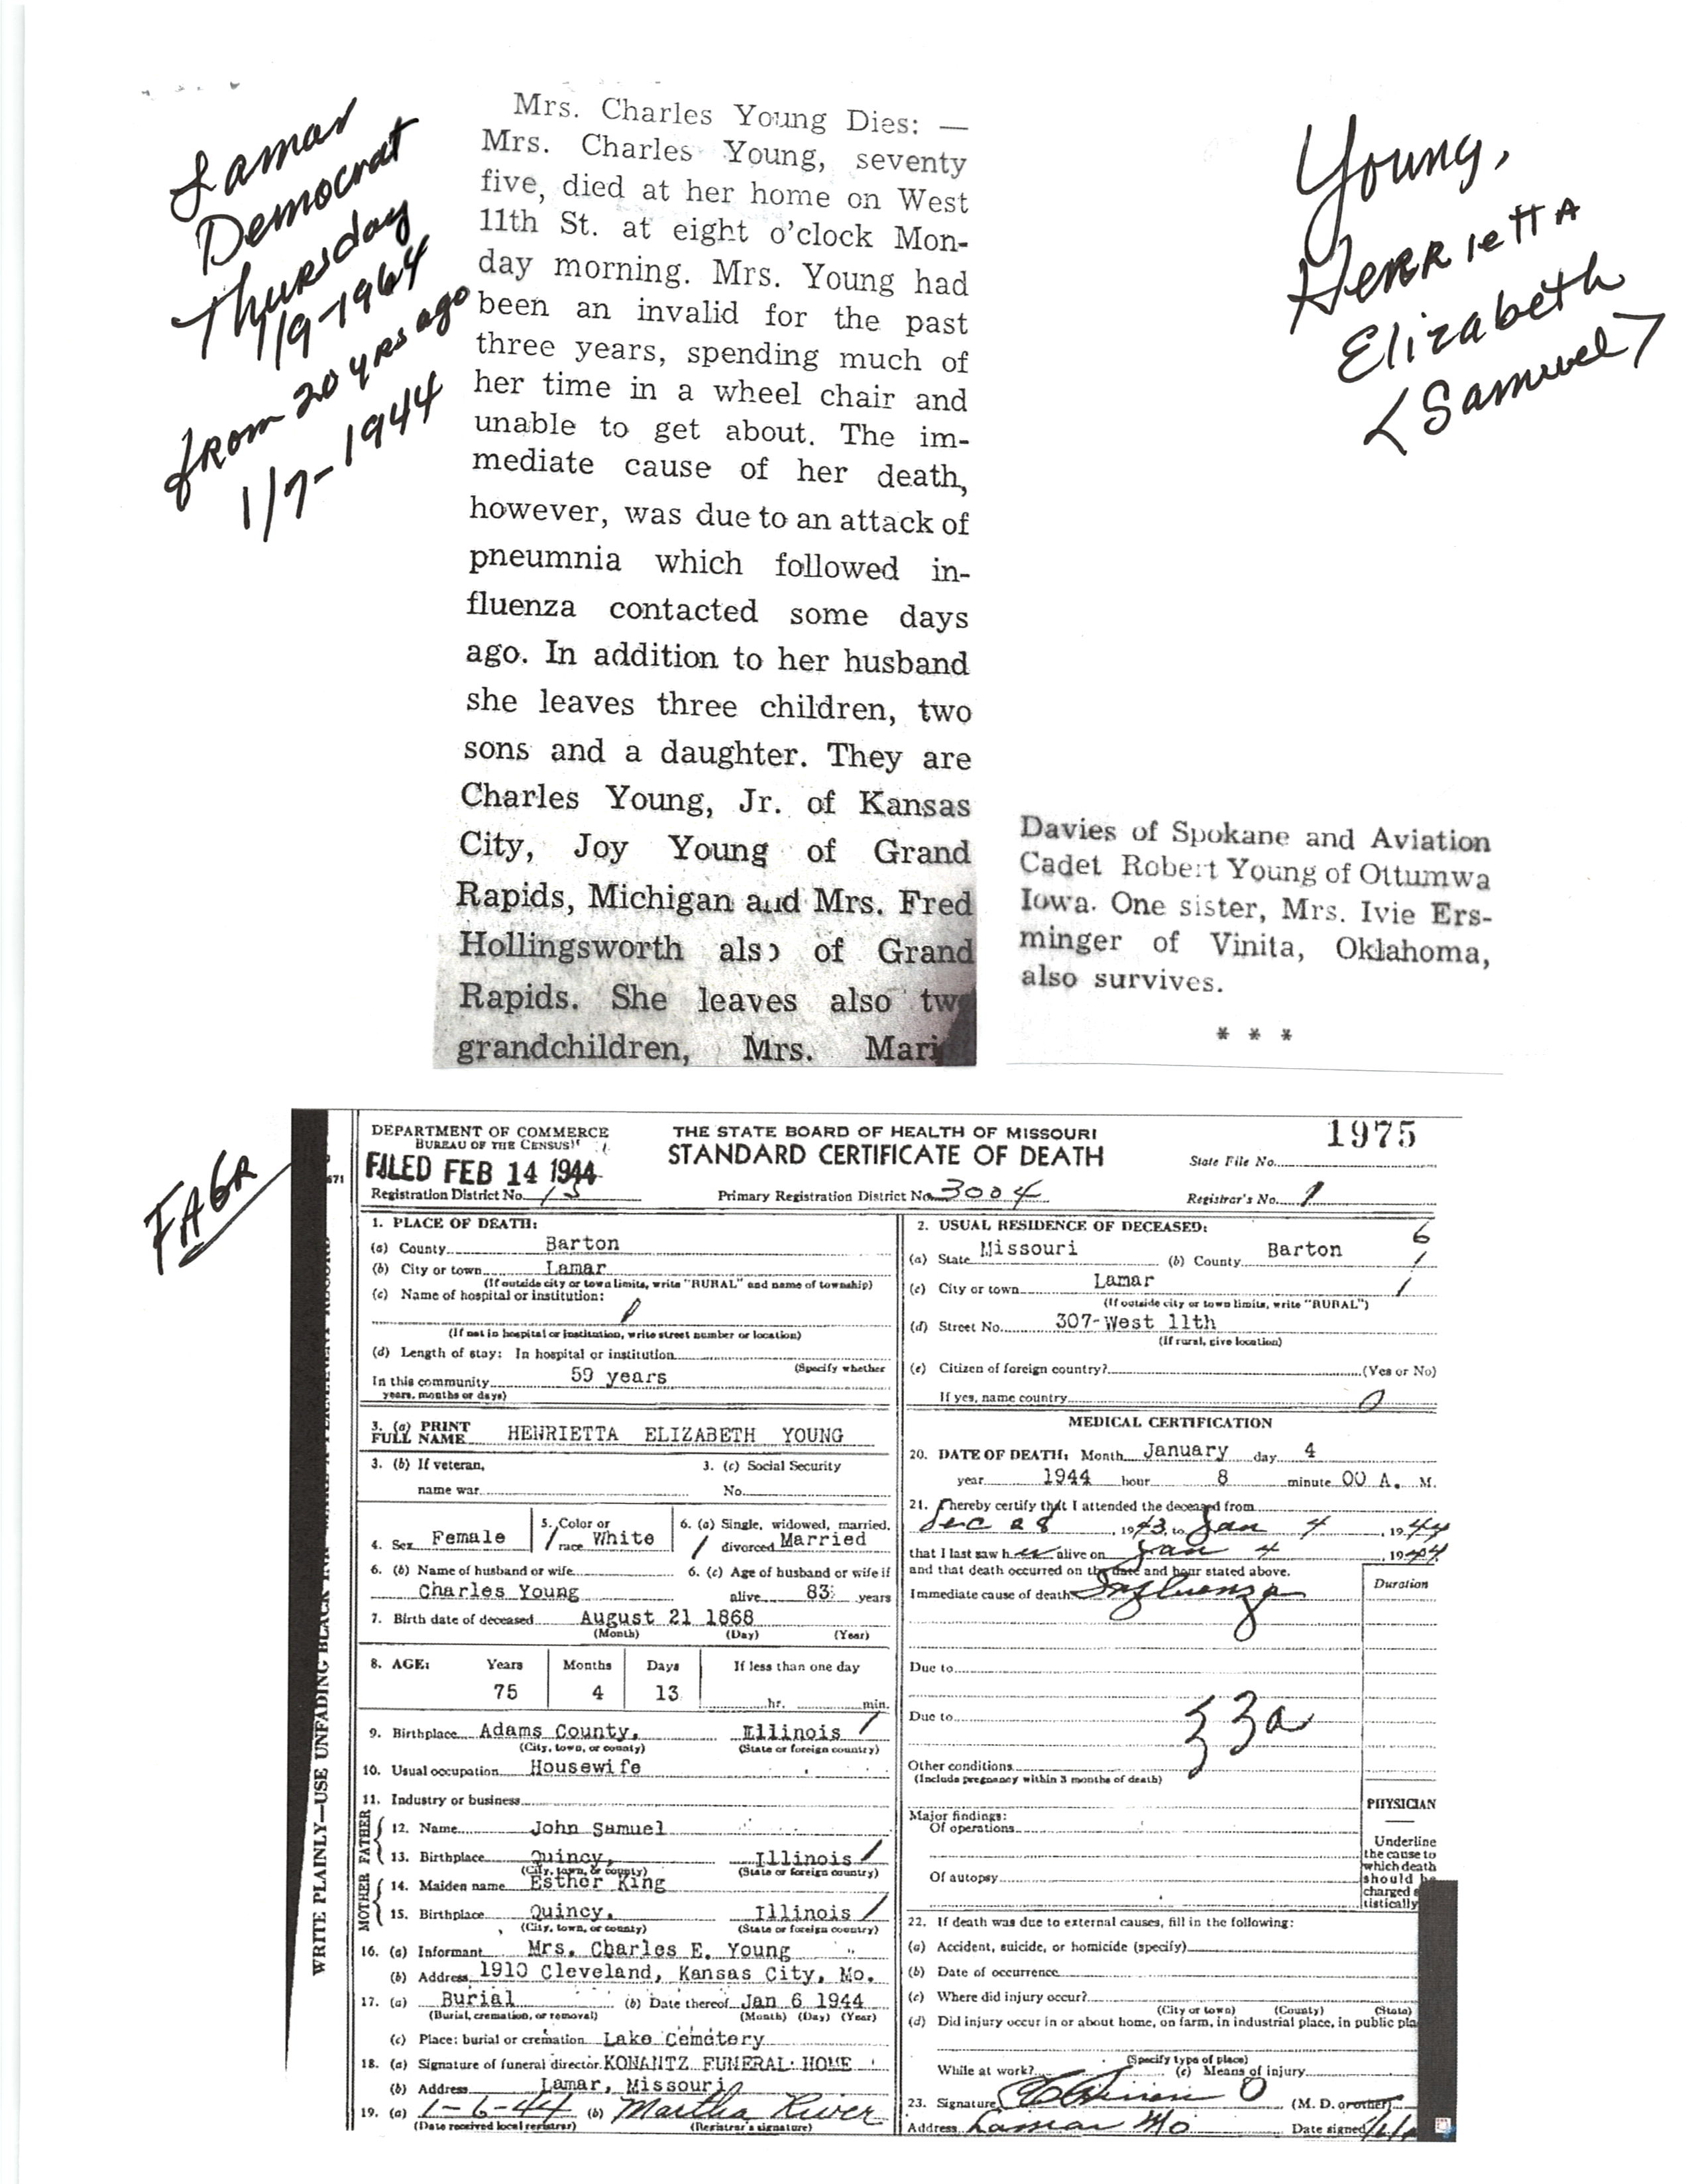 Lamar
Democrat
Thursday
1/9-1964
from 20 yrs ago
1/7-1944
Mrs. Charles Young Dies: —
Mrs. Charles Young, seventy
five, died at her home on West
11th St. at eight o'clock Mon-
day morning. Mrs. Young had
been an invalid for the past
three years, spending much of
her time in a wheel chair and
unable to get about. The im-
mediate cause of her death,
however, was due to an attack of
pneumnia which followed in-
fluenza contacted some days
ago. In addition to her husband
she leaves three children, two
sons and a daughter. They are
Charles Young, Jr. of Kansas
City, Joy Young of Grand
Rapids, Michigan and Mrs. Fred
Hollingsworth also of Grand
Rapids. She leaves also two
grandchildren, Mrs. Mari
Davies of Spokane and Aviation
Cadet Robert Young of Ottumwa
Iowa. One sister, Mrs. Ivie Ers-
minger of Vinita, Oklahoma,
also survives.
* * *
Young,
Henrietta
Elizabeth
<Samuel>
FAGR
DEPARTMENT OF COMMERCE
BUREAU OF THE CENSUS
FILED FEB 14 1944
Registration District No. 15
THE STATE BOARD OF HEALTH OF MISSOURI
STANDARD CERTIFICATE OF DEATH
Primary Registration District No. 3004
1975
State File No.
Registrar's No. 1
671
WRITE PLAINLY—USE UNFADING BLACK INK—MAKE A PERMANENT RECORD
1. PLACE OF DEATH:
(a) County Barton
(b) City or town Lamar
(If outside city or town limits, write "RURAL" and name of township)
(c) Name of hospital or institution:
(If not in hospital or institution, write street number or location)
(d) Length of stay: In hospital or institution
(Specify whether
In this community 59 years
years, months or days)
3. (a) PRINT
FULL NAME HENRIETTA ELIZABETH YOUNG
3. (b) If veteran,
name war
3. (c) Social Security
No.
4. Sex Female
5. Color or
race White
6. (a) Single, widowed, married,
divorced Married
6. (b) Name of husband or wife
Charles Young
6. (c) Age of husband or wife if
alive 83 years
7. Birth date of deceased August 21 1868
(Month) (Day) (Year)
8. AGE: Years Months Days If less than one day
75 4 13 hr. min.
9. Birthplace Adams County, Illinois
(City, town, or county) (State or foreign country)
10. Usual occupation Housewife
11. Industry or business
FATHER
12. Name John Samuel
13. Birthplace Quincy, Illinois
(City, town, or county) (State or foreign country)
MOTHER
14. Maiden name Esther King
15. Birthplace Quincy, Illinois
(City, town, or county) (State or foreign country)
16. (a) Informant Mrs. Charles E. Young
(b) Address 1910 Cleveland, Kansas City, Mo.
17. (a) Burial (b) Date thereof Jan 6 1944
(Burial, cremation, or removal) (Month) (Day) (Year)
(c) Place: burial or cremation Lake Cemetery
18. (a) Signature of funeral director KONANTZ FUNERAL HOME
(b) Address Lamar, Missouri
19. (a) 1-6-44 (b) Martha River
(Date received local registrar) (Registrar's signature)
2. USUAL RESIDENCE OF DECEASED:
6
(a) State Missouri (b) County Barton
(c) City or town Lamar
(If outside city or town limits, write "RURAL")
(d) Street No. 307-West 11th
(If rural, give location)
(e) Citizen of foreign country? (Yes or No)
If yes, name country 0
MEDICAL CERTIFICATION
20. DATE OF DEATH: Month January day 4
year 1944 hour 8 minute 00 A. M.
21. I hereby certify that I attended the deceased from
Dec 28, 1943, to Jan 4, 1944
that I last saw her alive on Jan 4, 1944
and that death occurred on the date and hour stated above.
Immediate cause of death Influenza
Duration
Due to
Due to
33a
Other conditions
(Include pregnancy within 3 months of death)
Major findings:
Of operations
Of autopsy
PHYSICIAN
Underline
the cause to
which death
should be
charged s
tistically
22. If death was due to external causes, fill in the following:
(a) Accident, suicide, or homicide (specify)
(b) Date of occurrence
(c) Where did injury occur?
(City or town) (County) (State)
(d) Did injury occur in or about home, on farm, in industrial place, in public pla
(Specify type of place)
While at work? (e) Means of injury
23. Signature (M. D. or other)
Address Lamar Mo Date signed